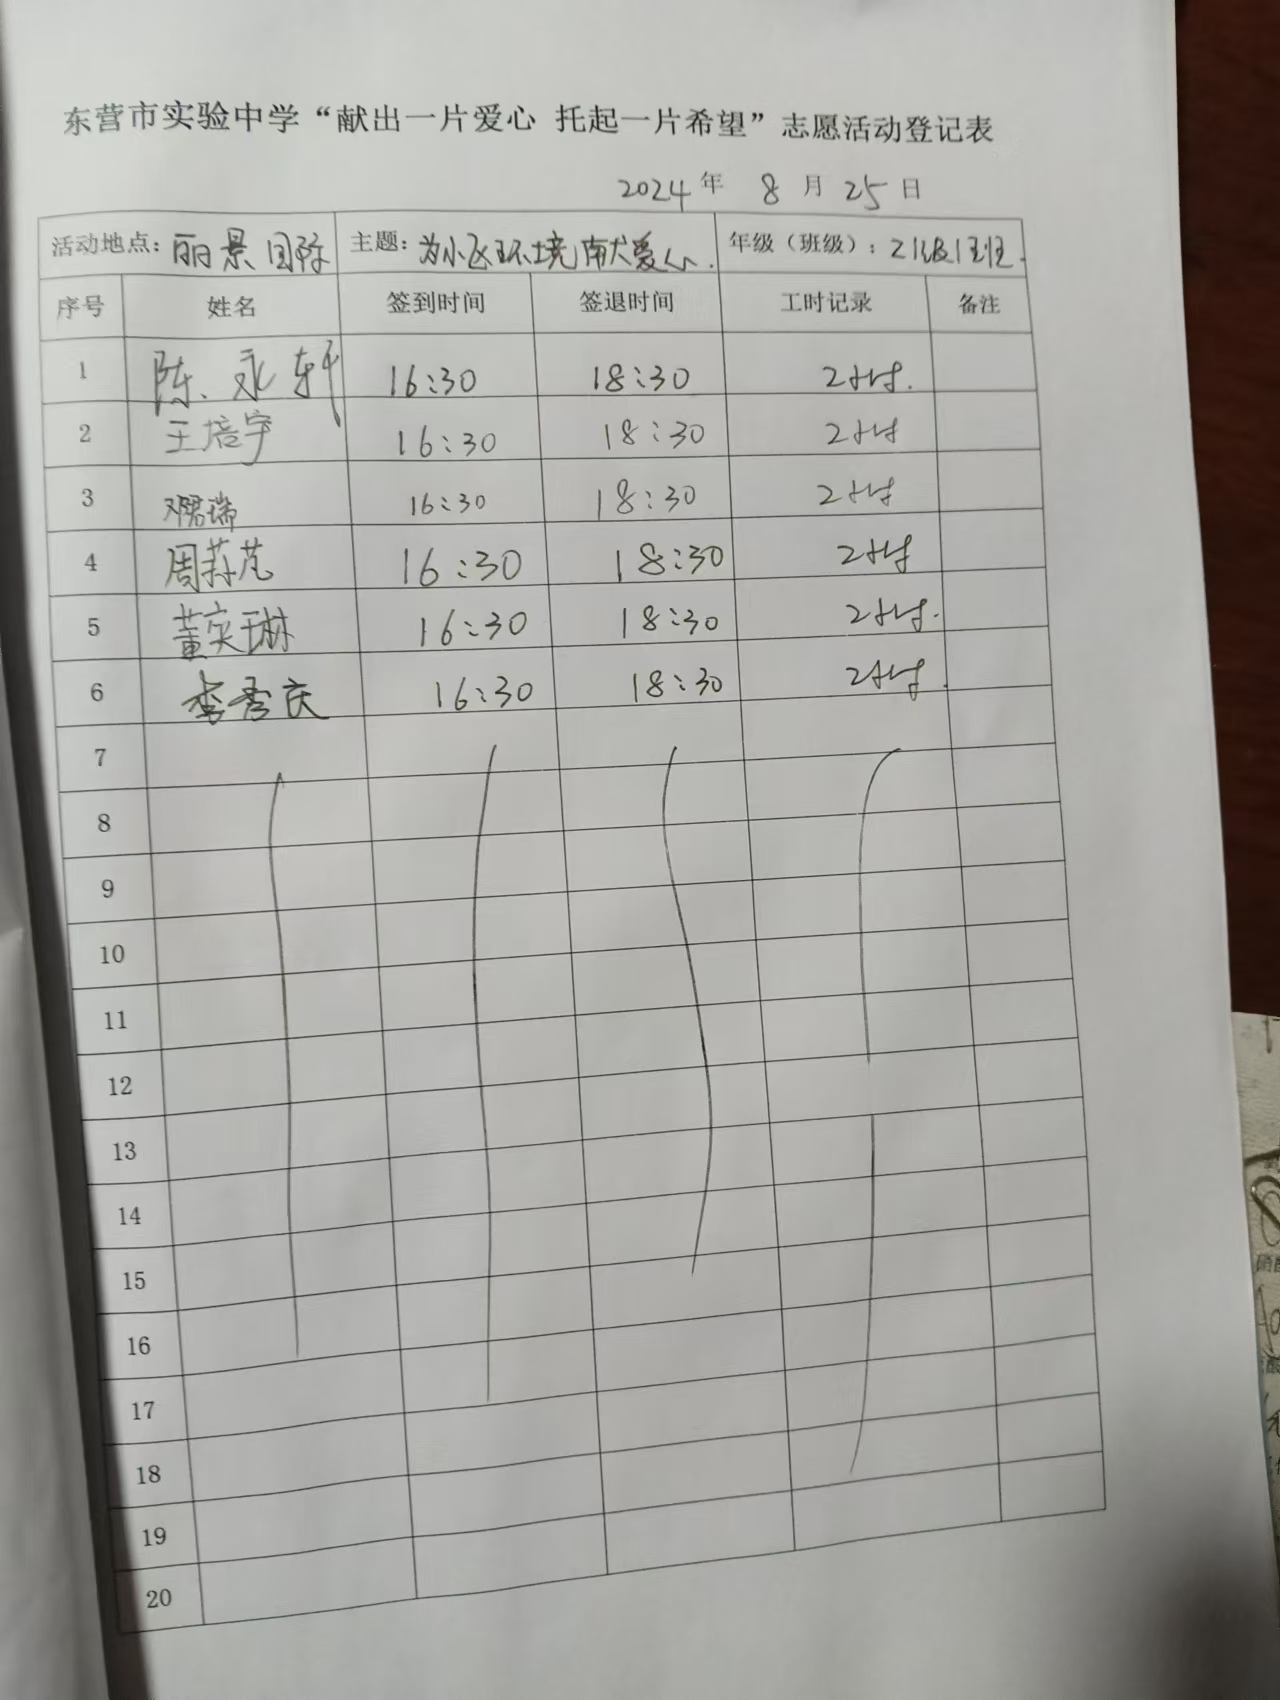 东营市实验中学“献出一片爱心 托起一片希望”志愿活动登记表
2024年 8月25日
活动地点：丽景国际 主题：为小区环境献爱心. 年级（班级）：21级1班.
序号 姓名 签到时间 签退时间 工时记录 备注
1 陈永轩 16:30 18:30 2小时.
2 王培宇 16:30 18:30 2小时
3 邓君瑞 16:30 18:30 2小时
4 周 16:30 18:30 2小时
5 董奕琳 16:30 18:30 2小时.
6 李秀庆 16:30 18:30 2小时.
7
8
9
10
11
12
13
14
15
16
17
18
19
20